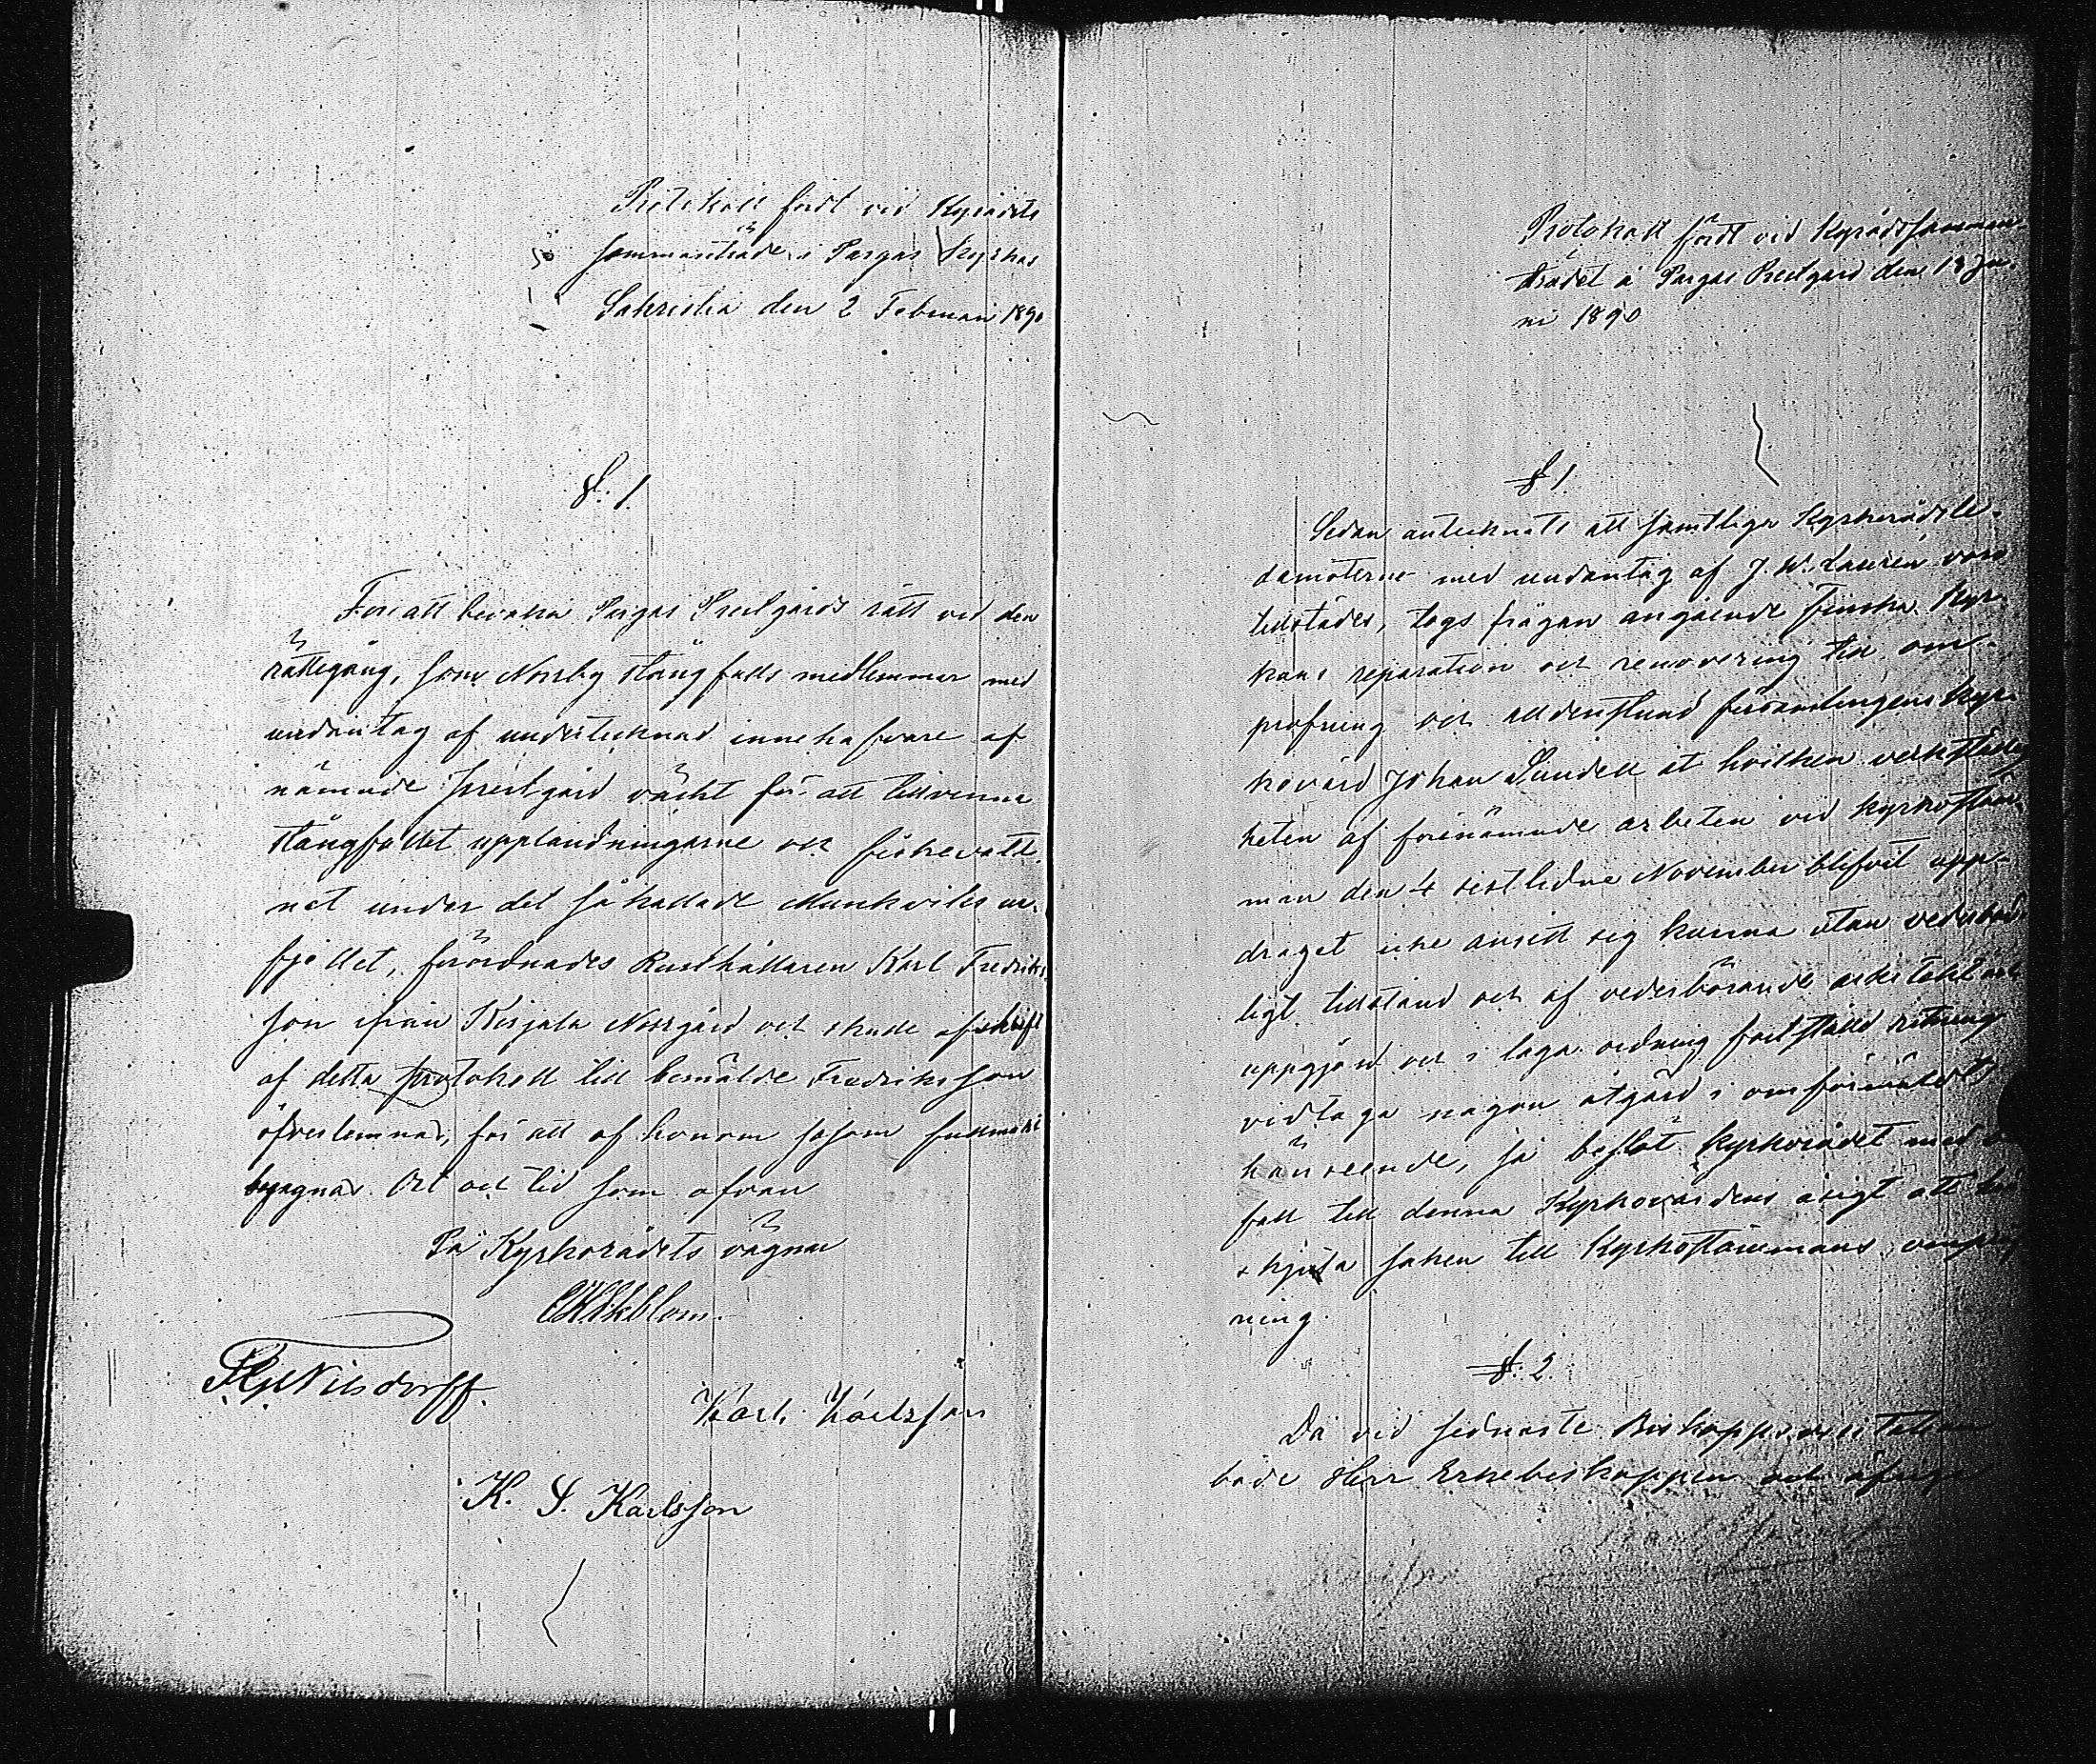 Protokoll fördt vid Kyrådets
sammanträde i Pargas Kyrkas
Sakristia den 2 Februari 1890
§. 1.
För att bevaka Pargas Prestgårds rätt vid den
rättegång, som Norrby stångfalls medlemmar med
undantag af undertecknad innehafvare af
nämnde prestgård väckt för att tillvinna
stångfallet upplandningarne och fiskevatt-
net under det så kallade Munkviks
fjellet, förordnades Rusthållaren Karl Fredriks
son från Kirjala Norrgård och skulle afskrift
af detta protokoll till bemälde Fredriksson
öfverlemnas, för att af honom såsom fullmakt
begagnas. Ort och tid som ofvan
På Kyrkorådets vägnar
Wikblom.
Nilsdorff.
Karl Karlsson
K. S. Karlsson
Protokoll fördt vid Kyrådssamman-
trädet å Pargas Prestgård den 18 Ju-
ni 1890
§ 1.
Sedan antecknats att samtliga Kyrkorådsle-
damöterne med undantag af J. W. Laurén voro
tillstädes, togs frågan angående Finska Kyr-
kans reparation och renovering till om-
pröfning och alldenstund församlingens Kyr-
kovärd Johan Sundell åt hvilken verkställig
heten af förenämnde arbeten vid kyrkostäm-
man den 4 sistlidne November blifvit upp-
draget icke ansett sig kunna utan vederbör-
ligt tillstånd och af vederbörande arkitekt
uppgjord och i laga ordning fastställd ritning
vidtaga någon åtgärd i omförmäldt
hänseende, så beslöt kyrkorådet med
fall till denna Kyrkovärdens åsigt att
skjuta saken till Kyrkostämmans ompröf
ning.
§. 2.
Då vid sednaste Biskoppsvisitation
både Herr Erkebiskoppen och öfriga